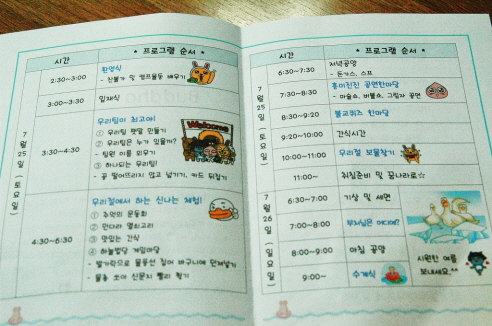 시간
* 프로그램 순서 *
7월 25일(토요일)
2:30~3:00
환영식
- 찬불가 및 염불율동 배우기
3:00~3:30
입재식
3:30~4:30
우리팀이 최고야!
① 우리팀 팻말 만들기
② 우리팀은 누가 있을까?
- 팀원 이름 외우기
③ 하나되는 우리팀!
- 공 떨어뜨리지 않고 넘기기, 카드 뒤집기
Welcome
4:30~6:30
우리절에서 하는 신나는 체험!
① 추억의 운동회
② 만다라 열쇠고리
③ 맛있는 간식
④ 하늘법당 게임마당
- 발가락으로 물풍선 집어 바구니에 던져넣기
- 물총 쏘아 신문지 빨리 찢기
시간
* 프로그램 순서 *
7월 25일(토요일)
6:30~7:30
저녁공양
- 돈가스, 스프
7:30~8:30
흥미진진 공연한마당
- 마술쇼, 버블쇼, 그림자 공연
8:30~9:20
불교퀴즈 한마당
9:20~10:00
간식시간
10:00~11:00
우리절 보물찾기
11:00~
취침준비 및 꿈나라로☆
7월 26일(일요일)
6:30~7:00
기상 및 세면
7:00~8:00
부처님은 어디에?
8:00~9:00
아침 공양
9:00~
수계식
시원한 여름
보내세요.^^